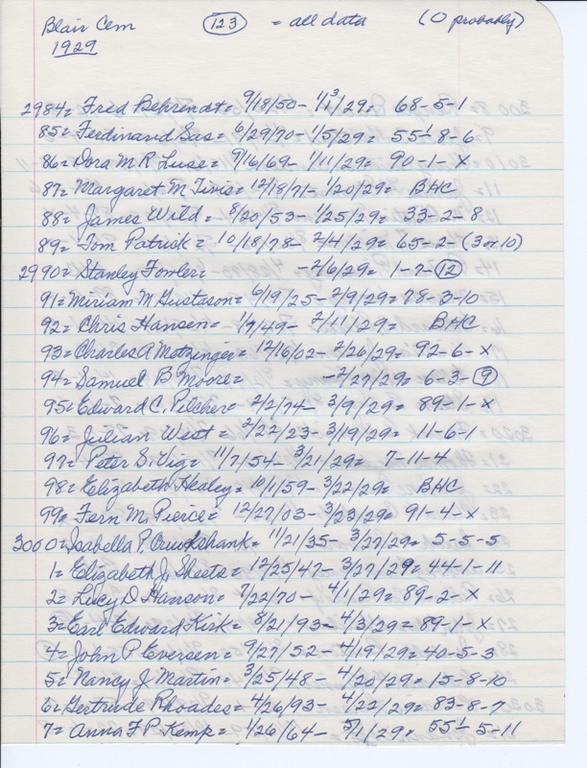 Blair Cem (123) = all data (0 probably)
1929
2984= Fred Behrendt= 9/18/50 - 1/3/29= 68-5-1
85= Ferdinand Sas= 6/29/70 - 1/5/29= 55½-8-6
86= Dora M R Luse= 9/16/69 - 1/11/29= 90-1-X
87= Margaret M Tinis= 12/18/71 - 1/20/29= BHC
88= James Wild= 8/20/53 - 1/25/29= 33-2-8
89= Tom Patrick= 10/18/78 - 2/4/29= 65-2-(3 or 10)
2990= Stanley Fowler= - 2/6/29= 1-7-(12)
91= Miriam M Gustason= 6/19/25 - 2/9/29= 78-3-10
92= Chris Hansen= 1/7/49- 2/11/29= BHC
93= Charles A Metzinger= 12/16/02 - 2/26/29= 92-6-X
94= Samuel B Moore= - 2/27/29= 6-3-(9)
95= Edward C. Pilcher= 2/2/74 - 3/9/29= 89-1-X
96= Julian West= 2/22/23 - 3/19/29= 11-6-1
97= Peter S. Vig= 11/7/54 - 3/21/29= 7-11-4
98= Elizabeth Healey= 10/1/59 - 3/22/29= BHC
99= Fern M. Pierce= 12/27/03 - 3/23/29= 91-4-X
3000= Isabella P. Cruikshank= 11/21/35 - 3/27/29= 5-5-5
1= Elizabeth J. Sheets= 12/25/47 - 3/27/29= 44-1-11
2= Lucy D Hanson= 7/22/70 - 4/1/29= 89-2-X
3= Earl Edward Kirk= 8/21/93 - 4/3/29= 89-1-X
4= John P Eversen= 9/27/52 - 4/19/29= 40-5-3
5= Nancy J. Martin= 3/25/48 - 4/20/29= 15-8-10
6= Gertrude Rhoades= 4/26/93 - 4/22/29= 83-8-7
7= Anna F P Kemp= 1/26/64 - 5/1/29= 55½-5-11